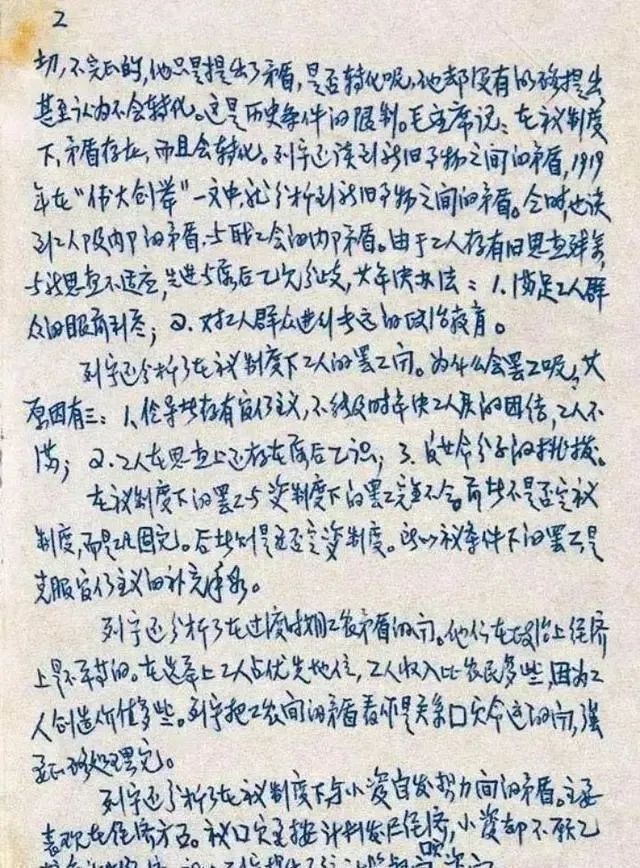 2
切,不完正的,他只是提出了矛盾,是否转化呢,他却没有明确提出,
甚至认为不会转化。这是历史条件的限制。毛主席说:在社制度
下,矛盾存在,而且会转化。列宁还谈到新旧事物之间的矛盾,1919
年在“伟大创举”一文中,就分析到新旧事物之间的矛盾。同时,也谈
到工人阶及内部的矛盾,与职工会的内部矛盾。由于工人存有旧思想残余,
与新思想不适应,先进与落后意识的,其解决办法:1.满足工人群
众的眼前利益;2.对工人群众进行长远的政治教育。
列宁还分析了在社制度下工人的罢工问。为什么会罢工呢,其
原因有三:1.领导者存有官僚主义,不能及时解决工人的团结,工人不
满;2.工人在思想上还存在落后意识;3.反革命分子的挑拨。
在社制度下的罢工与资制度下的罢工完全不同。前者不是否定社
制度,而是巩固它。后者则是否定资制度。所以社条件下的罢工是
克服官僚主义的补充手段。
列宁还分析了在过渡时期工农矛盾的问。他们在政治上经济
上是不平等的。在选举上工人占优先地位,工人收入比农民多些,因为工
人创造价值多些。列宁把工农间的矛盾看作是关系口家命运的问,强
正确处理它。
列宁还分析了在社制度下与小资自发势力间的矛盾。主要
表现在经济方面。社口家主按计划发展经济,小资却不愿